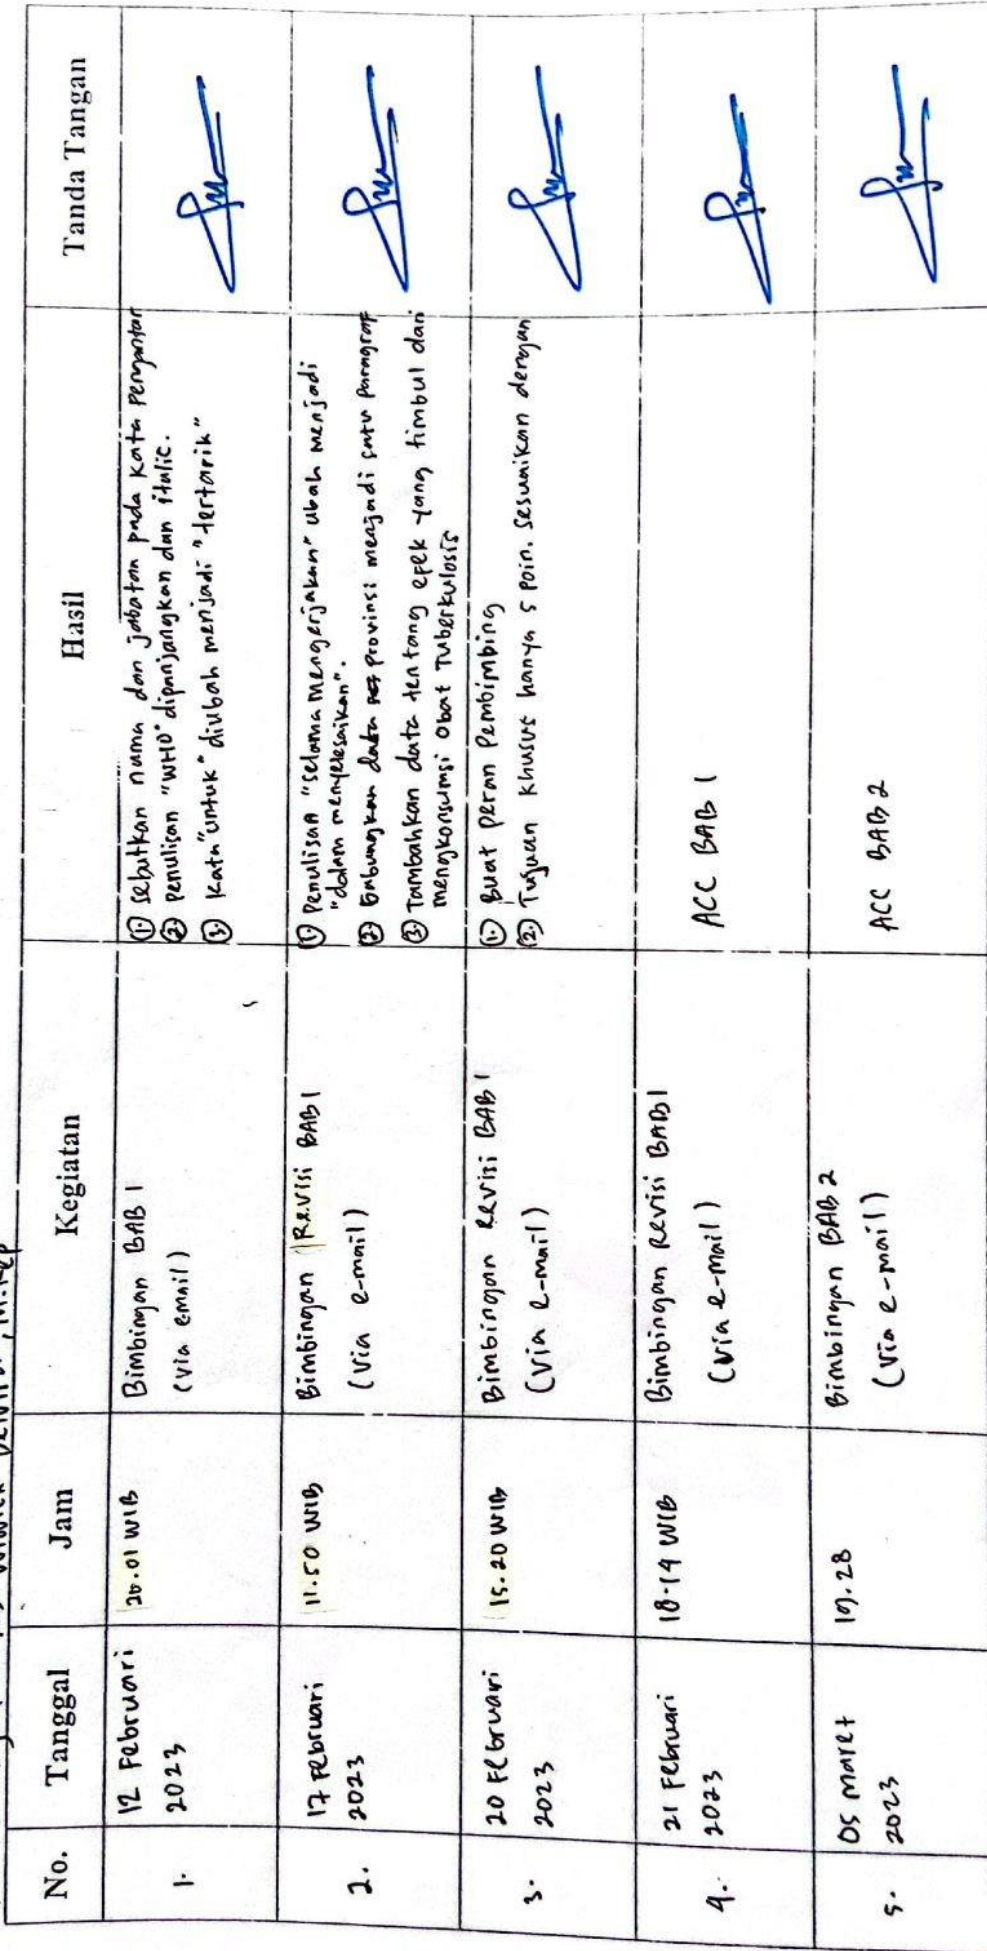 No. Tanggal Jam Kegiatan Hasil Tanda Tangan
1. 12 Februari 2023
20.01 WIB
Bimbingan BAB 1
(via email)
① Sebutkan nama dan jabatan pada kata pengantar
② Penulisan "WHO" dipanjangkan dan italic.
③ Kata "untuk" diubah menjadi "tertarik"
2. 17 Februari 2023
11.50 WIB
Bimbingan Revisi BAB 1
(via e-mail)
① Penulisan "selama mengerjakan" ubah menjadi
"dalam menyelesaikan".
② Gabungkan data provinsi menjadi satu paragraf
③ Tambahkan data tentang efek yang timbul dari
mengkonsumsi obat Tuberkulosis
3. 20 Februari 2023
15.20 WIB
Bimbingan Revisi BAB 1
(via e-mail)
① Buat peran pembimbing
② Tujuan khusus hanya 5 poin. Sesuaikan dengan
4. 21 Februari 2023
18.14 WIB
Bimbingan Revisi BAB 1
(via e-mail)
ACC BAB 1
5. 05 Maret 2023
19.28
Bimbingan BAB 2
(via e-mail)
ACC BAB 2